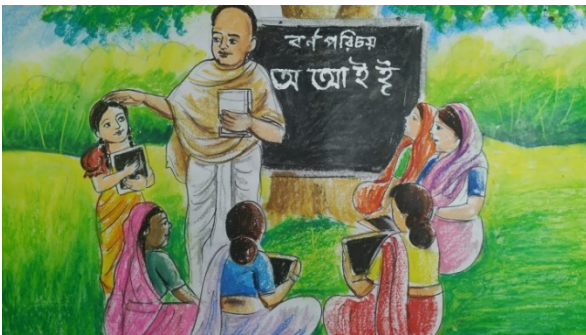 বর্ন পরিচয়
অ আ ই ঈ